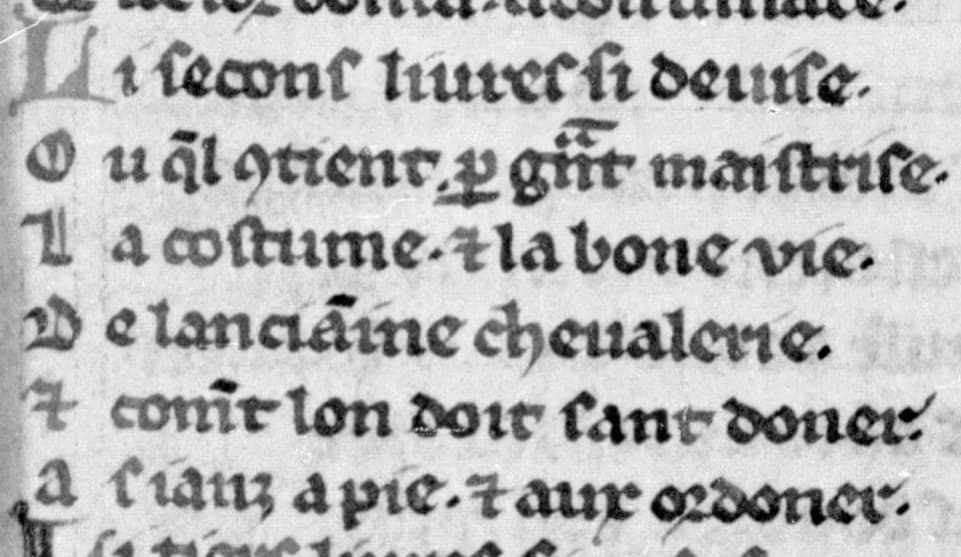 Li secons liures si deuise.
Ou q̃l ꝯtient. ꝑ gñt maistrise.
La costume. ⁊ la bone vie.
De lanciãine cheualerie.
⁊ com̃t lon doit sant doner.
A siauz a pie. ⁊ aux ordoner.